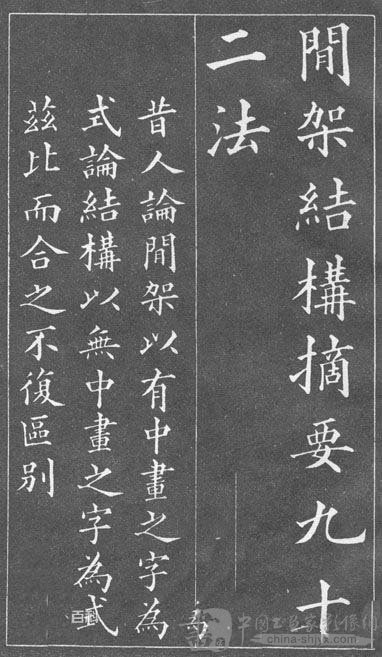 間架結構摘要九十
二法
昔人論間架以有中畫之字為
式論結構以無中畫之字為式
茲比而合之不復區别
百科
中国书画家影像网
china-shjyx.com